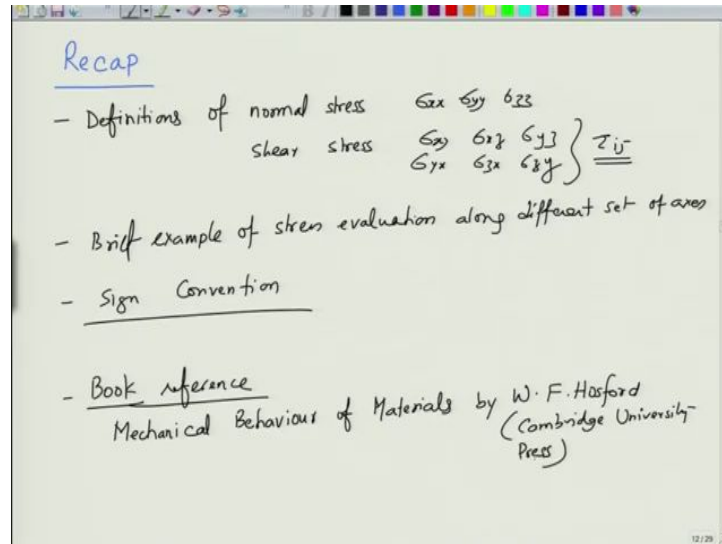 Recap
- Definitions of normal stress σxx σyy σzz
shear stress σxy σxz σyz } τij
σyx σzx σzy
- Brief example of stress evaluation along different set of axes
- Sign Convention
- Book reference
Mechanical Behaviour of Materials by W. F. Hosford
(Cambridge University
Press)
12/29